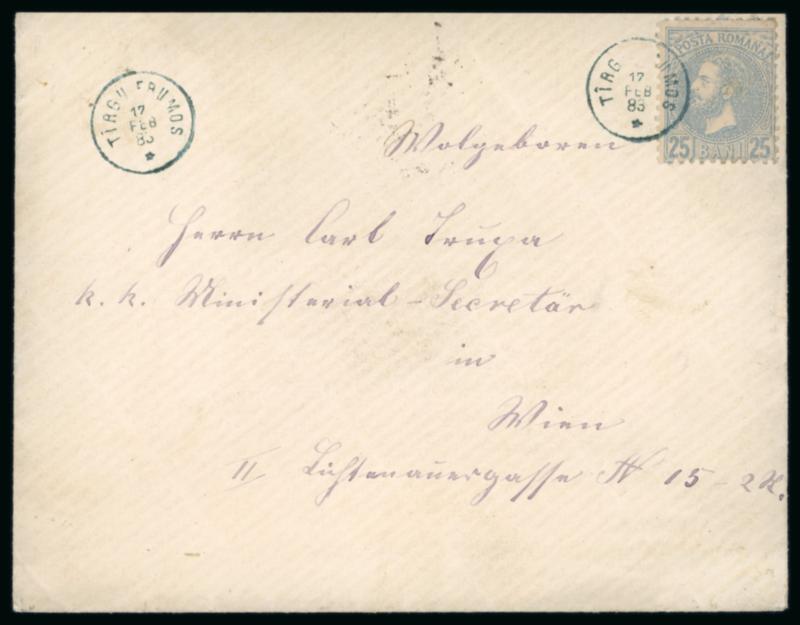 TÎRGU FRUMOS
17
FEB
83
TÎRG UMOS
17
FEB
83
POSTA ROMANA
25 BANI 25
Wolgeboren
Herrn Carl Trupa
k. k. Ministerial-Secretär
in
Wien
II Lichtenauergasse N 15 - 2 St.